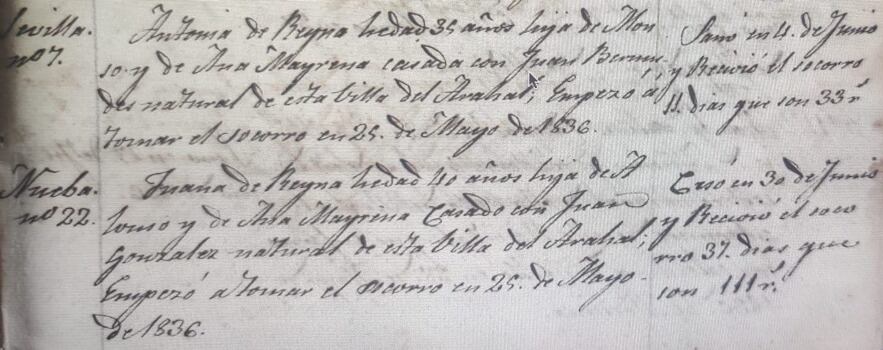 Sevilla.
nº 7.
Antonia de Reyna hedad 35 años hija de Alon
so y de Ana Mayrena casada con Juan Bermu
des natural de esta Villa del Arahal; Empezó á
tomar el socorro en 25. de Mayo de 1836.
Sanó en 4. de Junio
y Recivió el socorro
11. dias que son 33 r.^s
Nueba.
nº 22.
Juana de Reyna hedad 40 años hija de A
lonso y de Ana Mayrena Casada con Juan
Gonzalez natural de esta Villa del Arahal;
Empezó a tomar el socorro en 25. de Mayo
de 1836.
Cesó en 30 de Junio
y Recivió el soco
rro 37. dias que
son 111 r.^s